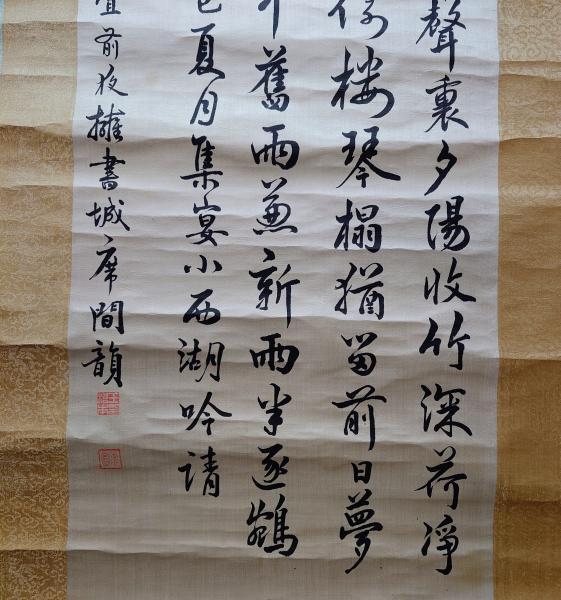 聲裏夕陽收竹深荷淨
樓琴榻猶留前日夢
舊雨兼新雨半逐鶴
夏月集宴小西湖吟請
前夜擁書城席間韻